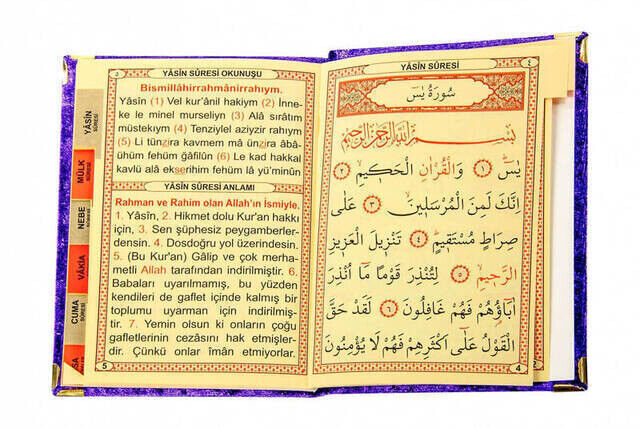 YÂSİN SÛRESİ OKUNUŞU
٥
Bismillâhirrahmânirrahıym.
Yâsîn (1) Vel kur'ânil hakiym (2) İnne-
ke le minel murseliyn (3) Alâ sırâtım
müstekıym (4) Tenziylel aziyzir rahıym
(5) Li tünzira kavmem mâ ünzira âbâ-
ühüm fehüm ğâfilûn (6) Le kad hakkal
kavlü alâ ekserihim fehüm lâ yü'minûn
YÂSİN SÛRESİ ANLAMI
Rahman ve Rahim olan Allah'ın İsmiyle.
1. Yâsîn, 2. Hikmet dolu Kur'an hakkı
için, 3. Sen şüphesiz peygamberler-
densin. 4. Dosdoğru yol üzerindesin.
5. (Bu Kur'an) Gâlip ve çok merha-
metli Allah tarafından indirilmiştir. 6.
Babaları uyarılmamış, bu yüzden
kendileri de gaflet içinde kalmış bir
toplumu uyarman için indirilmiş-
tir. 7. Yemin olsun ki onların çoğu
gafletlerinin cezasını hak etmişler-
dir. Çünkü onlar îmân etmiyorlar.
5
YÂSİN
SÛRESİ
MÜLK
SÛRESİ
NEBE
SÛRESİ
VÂKIA
SÛRESİ
CUMA
SÛRESİ
YÂSİN SÛRESİ
٤
سُورَةُ يٰسٓ
بِسْمِ اللّٰهِ الرَّحْمٰنِ الرَّحٖيمِ
يٰسٓ ﴿١﴾ وَالْقُرْاٰنِ الْحَكٖيمِ ﴿٢﴾
اِنَّكَ لَمِنَ الْمُرْسَلٖينَ ﴿٣﴾ عَلٰى
صِرَاطٍ مُسْتَقٖيمٍ ﴿٤﴾ تَنْزٖيلَ الْعَزٖيزِ
الرَّحٖيمِ ﴿٥﴾ لِتُنْذِرَ قَوْمًا مَٓا اُنْذِرَ
اٰبَٓاؤُ۬هُمْ فَهُمْ غَافِلُونَ ﴿٦﴾ لَقَدْ حَقَّ
الْقَوْلُ عَلٰٓى اَكْثَرِهِمْ فَهُمْ لَا يُؤْمِنُونَ
4
2